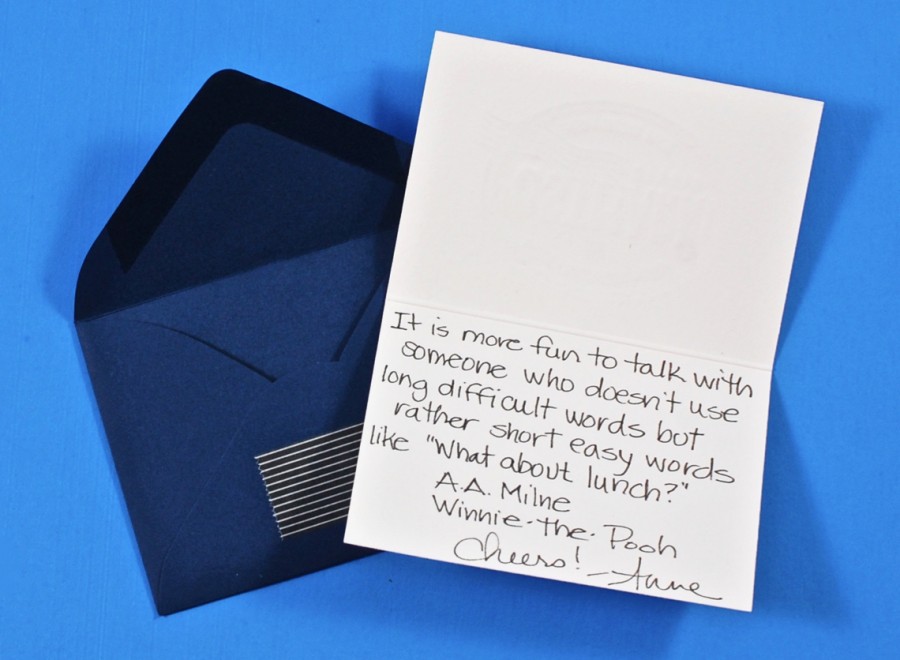 It is more fun to talk with
someone who doesn't use
long difficult words but
rather short easy words
like "What about lunch?"
A.A. Milne
Winnie-the-Pooh
Cheers! -Anne